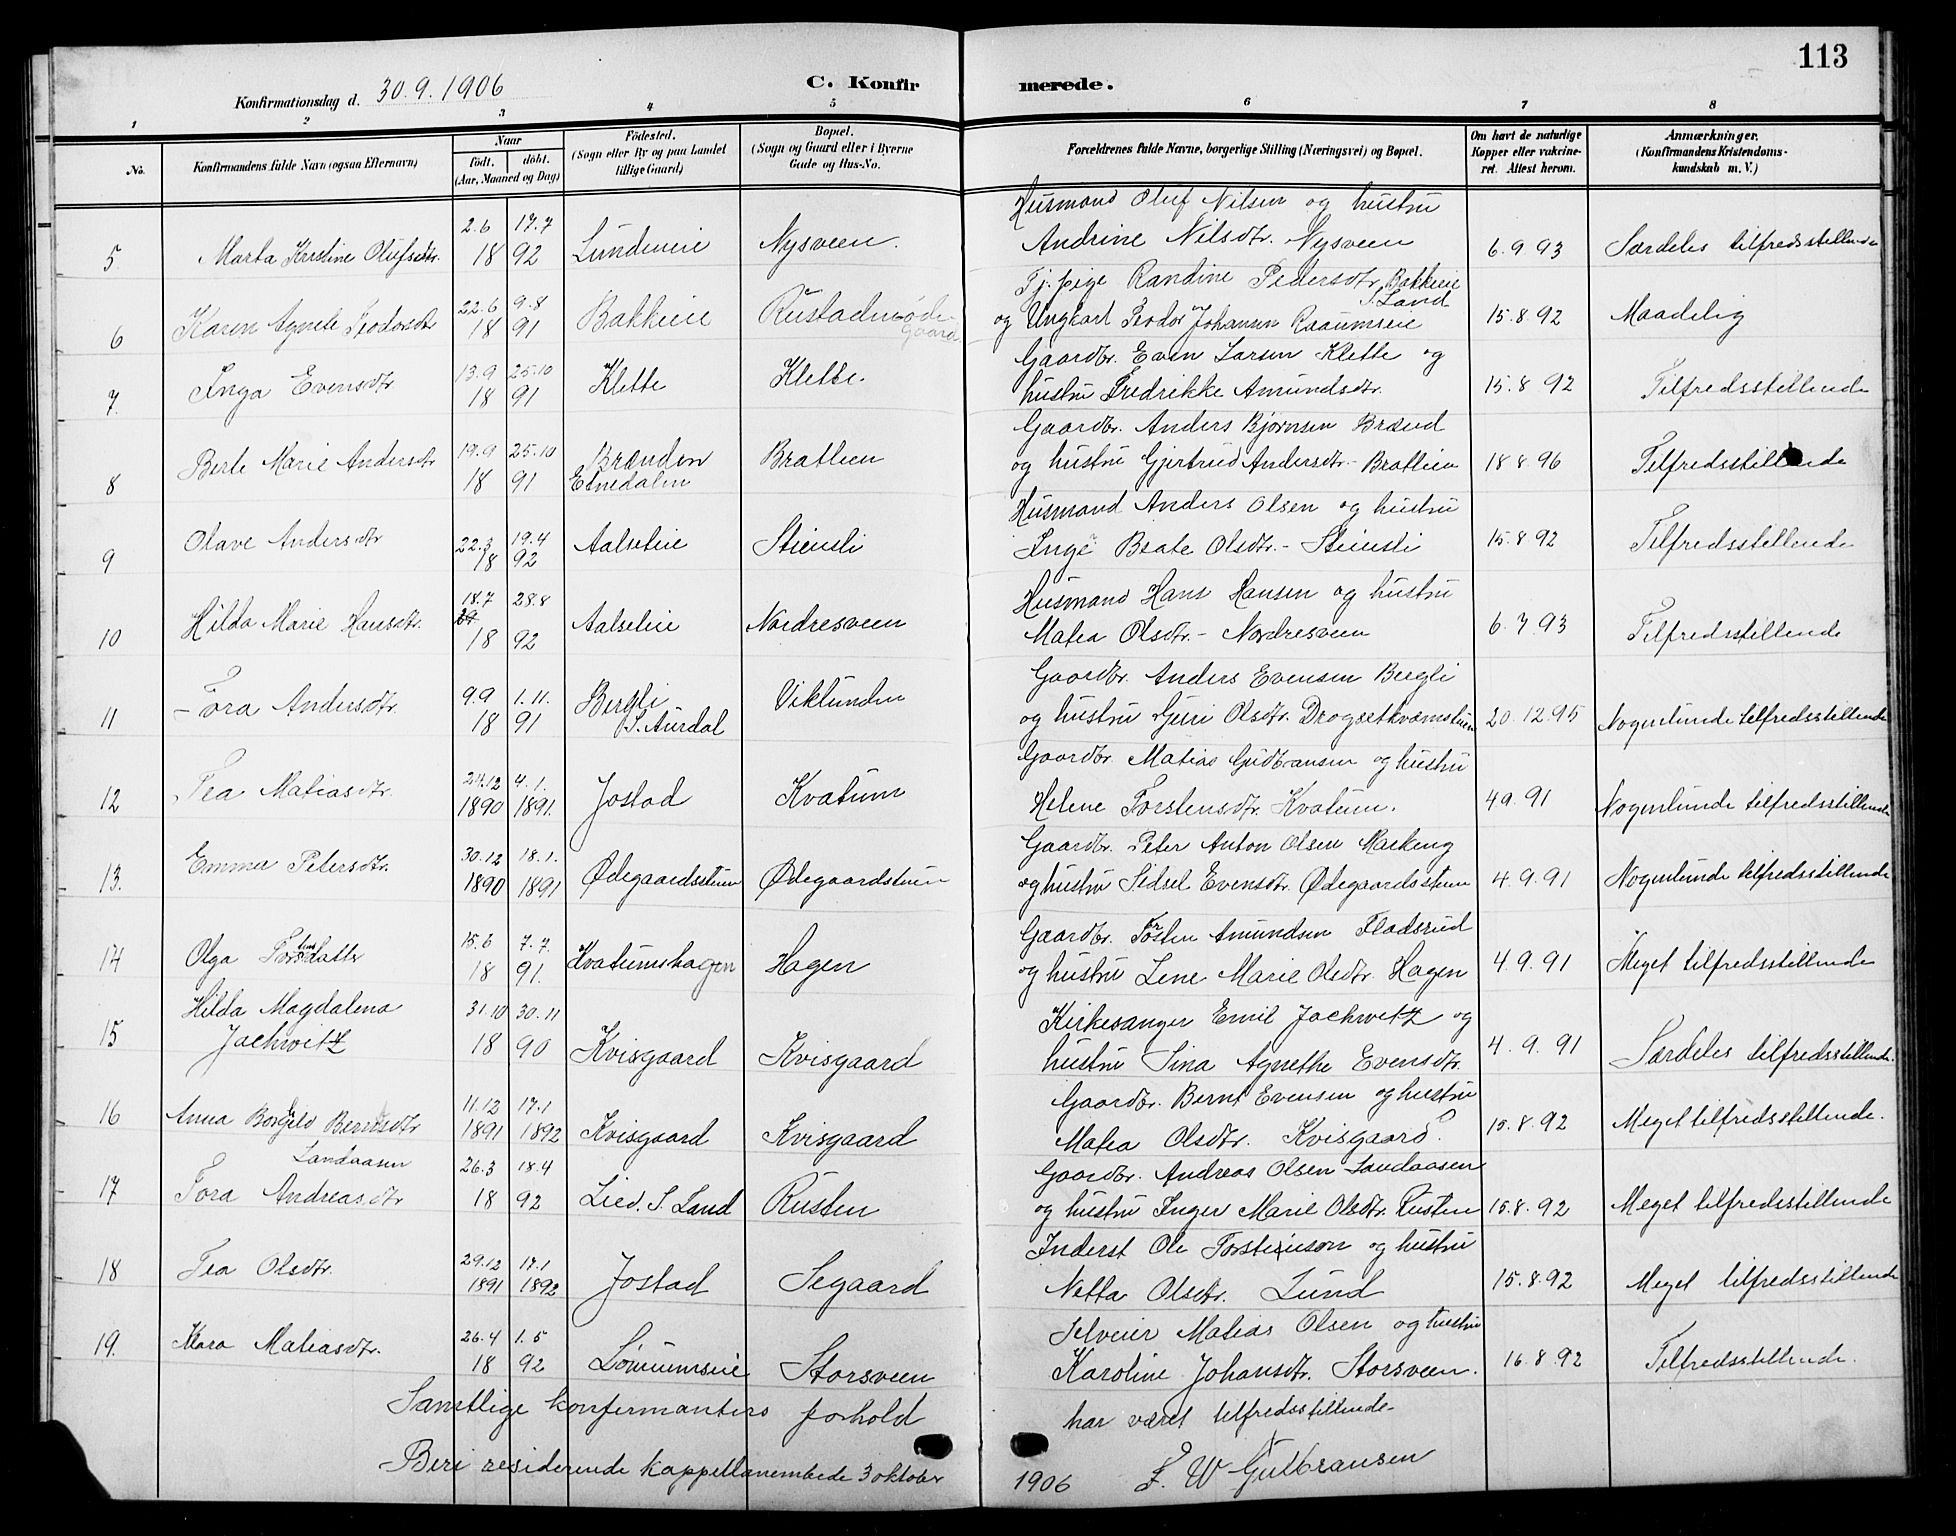 113
Konfirmationsdag d. 30.9.1906
C. Konfirmerede.
1 2 3 4 5 6 7 8
No. Konfirmandens fulde Navn (ogsaa Efternavn) Naar født. døbt. (Aar, Maaned og Dag) Fødested. (Sogn eller By og paa Landet tillige Gaard) Bopæl. (Sogn og Gaard eller i Byerne Gade og Hus-No. Forældrenes fulde Navne, borgerlige Stilling (Næringsvei) og Bopæl. Om havt de naturlige Kopper eller vakcineret. Attest herom. Anmærkninger. (Konfirmandens Kristendomskundskab m. V.)
Husmand Oluf Nilsen og hustru
5 Marta Kristine Olufsdtr. 2.6 17.7 18 92 Lundeneie Nysveen. Andrine Nilsdtr. Nysveen 6.9.93 Særdeles tilfredsstillende
Tj. pige Randine Pedersdtr. Bakkeie S. Land
6 Karen Agnete Teodorsdtr 22.6 9.8 18 91 Bakkeie Rustadmødegaard og Ungkarl Teodor Johansen Raaumseie 15.8.92 Maadelig
Gaardbr. Even Larsen Klette og
7. Inga Evensdtr 13.9 25.10 18 91 Klette Klette. hustru Fredrikke Amundsdtr. 15.8 92 Tilfredsstillende
Gaardbr. Anders Bjørnsen Brænd
8 Berte Marie Andersdtr 19.9 25.10 18 91 Brænden Etnedalen Bratlien og hustru Gjertrud Andersdtr. Bratlien 18 8.96 Tilfredsstillende
Husmand Anders Olsen og hustru
9 Olave Andersdtr 22.3 19.4 18 92 Aalseie Stiensli Inge Beate Olsdtr. - Stiensli 15.8 92 Tilfredsstillende
Husmand Hans Hansen og hustru
10 Hilda Marie Hansdtr. 18.7 28.8 18 92 Aalseie Nordresveen Matea Olsdtr. - Nordresveen 6.7.93 Tilfredsstillende
Gaardbr. Anders Evensen Bergli
11 Tora Andersdtr. 9.9 1.11. 18 91 Bergli S. Aurdal Viklunden og hustru Guri Olsdtr. Drogsetkvæmstuen 20.12.95 Nogenlunde tilfredsstillende
Gaardbr. Matias Gudbransen og hustru
12 Tea Matiasdtr. 24.12 4.1. 1890 1891. Jostad Kvatum Helene Torstensdtr. Kvatum. 4 9.91 Nogenlunde tilfredsstillende
Gaardbr. Peter Anton Olsen Markeng
13. Emma Petersdtr. 30.12 18.1. 1890 1891 Ødegaardsstuen Ødegaardstuen og hustru Sidsel Evensdtr. Ødegaardsstuen 4.9.91 Nogenlunde tilfredsstillende
Gaardbr. Torsten Amundsen Fladsrud
14 Olga Torstensdatter 15.6 7.7. 18 91. Kvatumshagen Hagen og hustru Lene Marie Olsdtr. Hagen 4.9.91 Meget tilfredsstillende
Hilda Magdalena 31.10 30.11 Kirkesanger Emil Jachwitz og
15 Jachwitz 18 90 Kvisgaard Kvisgaard hustru Sina Agnethe Evensdtr. 4.9.91 Særdeles tilfredsstillende.
Gaardbr. Bernt Evensen og hustru
16 Anna Borghild Berntsdtr 11.12 17.1 1891 1892 Kvisgaard Kvisgaard Matea Olsdtr. Kvisgaard. 15.8.92 Meget tilfredsstillende.
Landaasen Gaardbr. Andreas Olsen Landaasen
17 Tora Andreasdtr 26.3 18.4 18 92 Lied. S. Land Rusten og hustru Inger Marie Olsdtr. Rusten 15.8.92 Meget tilfredsstillende
Inderst Ole Torsteinson og hustru
18 Tea Olsdtr. 29.12 17.1 1891 1892 Jostad Segaard Netta Olsdtr. Lund 15.8.92 Meget tilfredsstillende
Selveier Matias Olsen og hustru
19. Klara Matiasdtr. 26.4 1.5 18 92 Lønumseie Storsveen Karoline Johansdtr. Storsveen. 16.8.92 Tilfredsstillende.
Samtlige konfirmanters forhold har været tilfredsstillende.
Biri residerende kappellanembede 3 oktober 1906 F. W Gulbransen